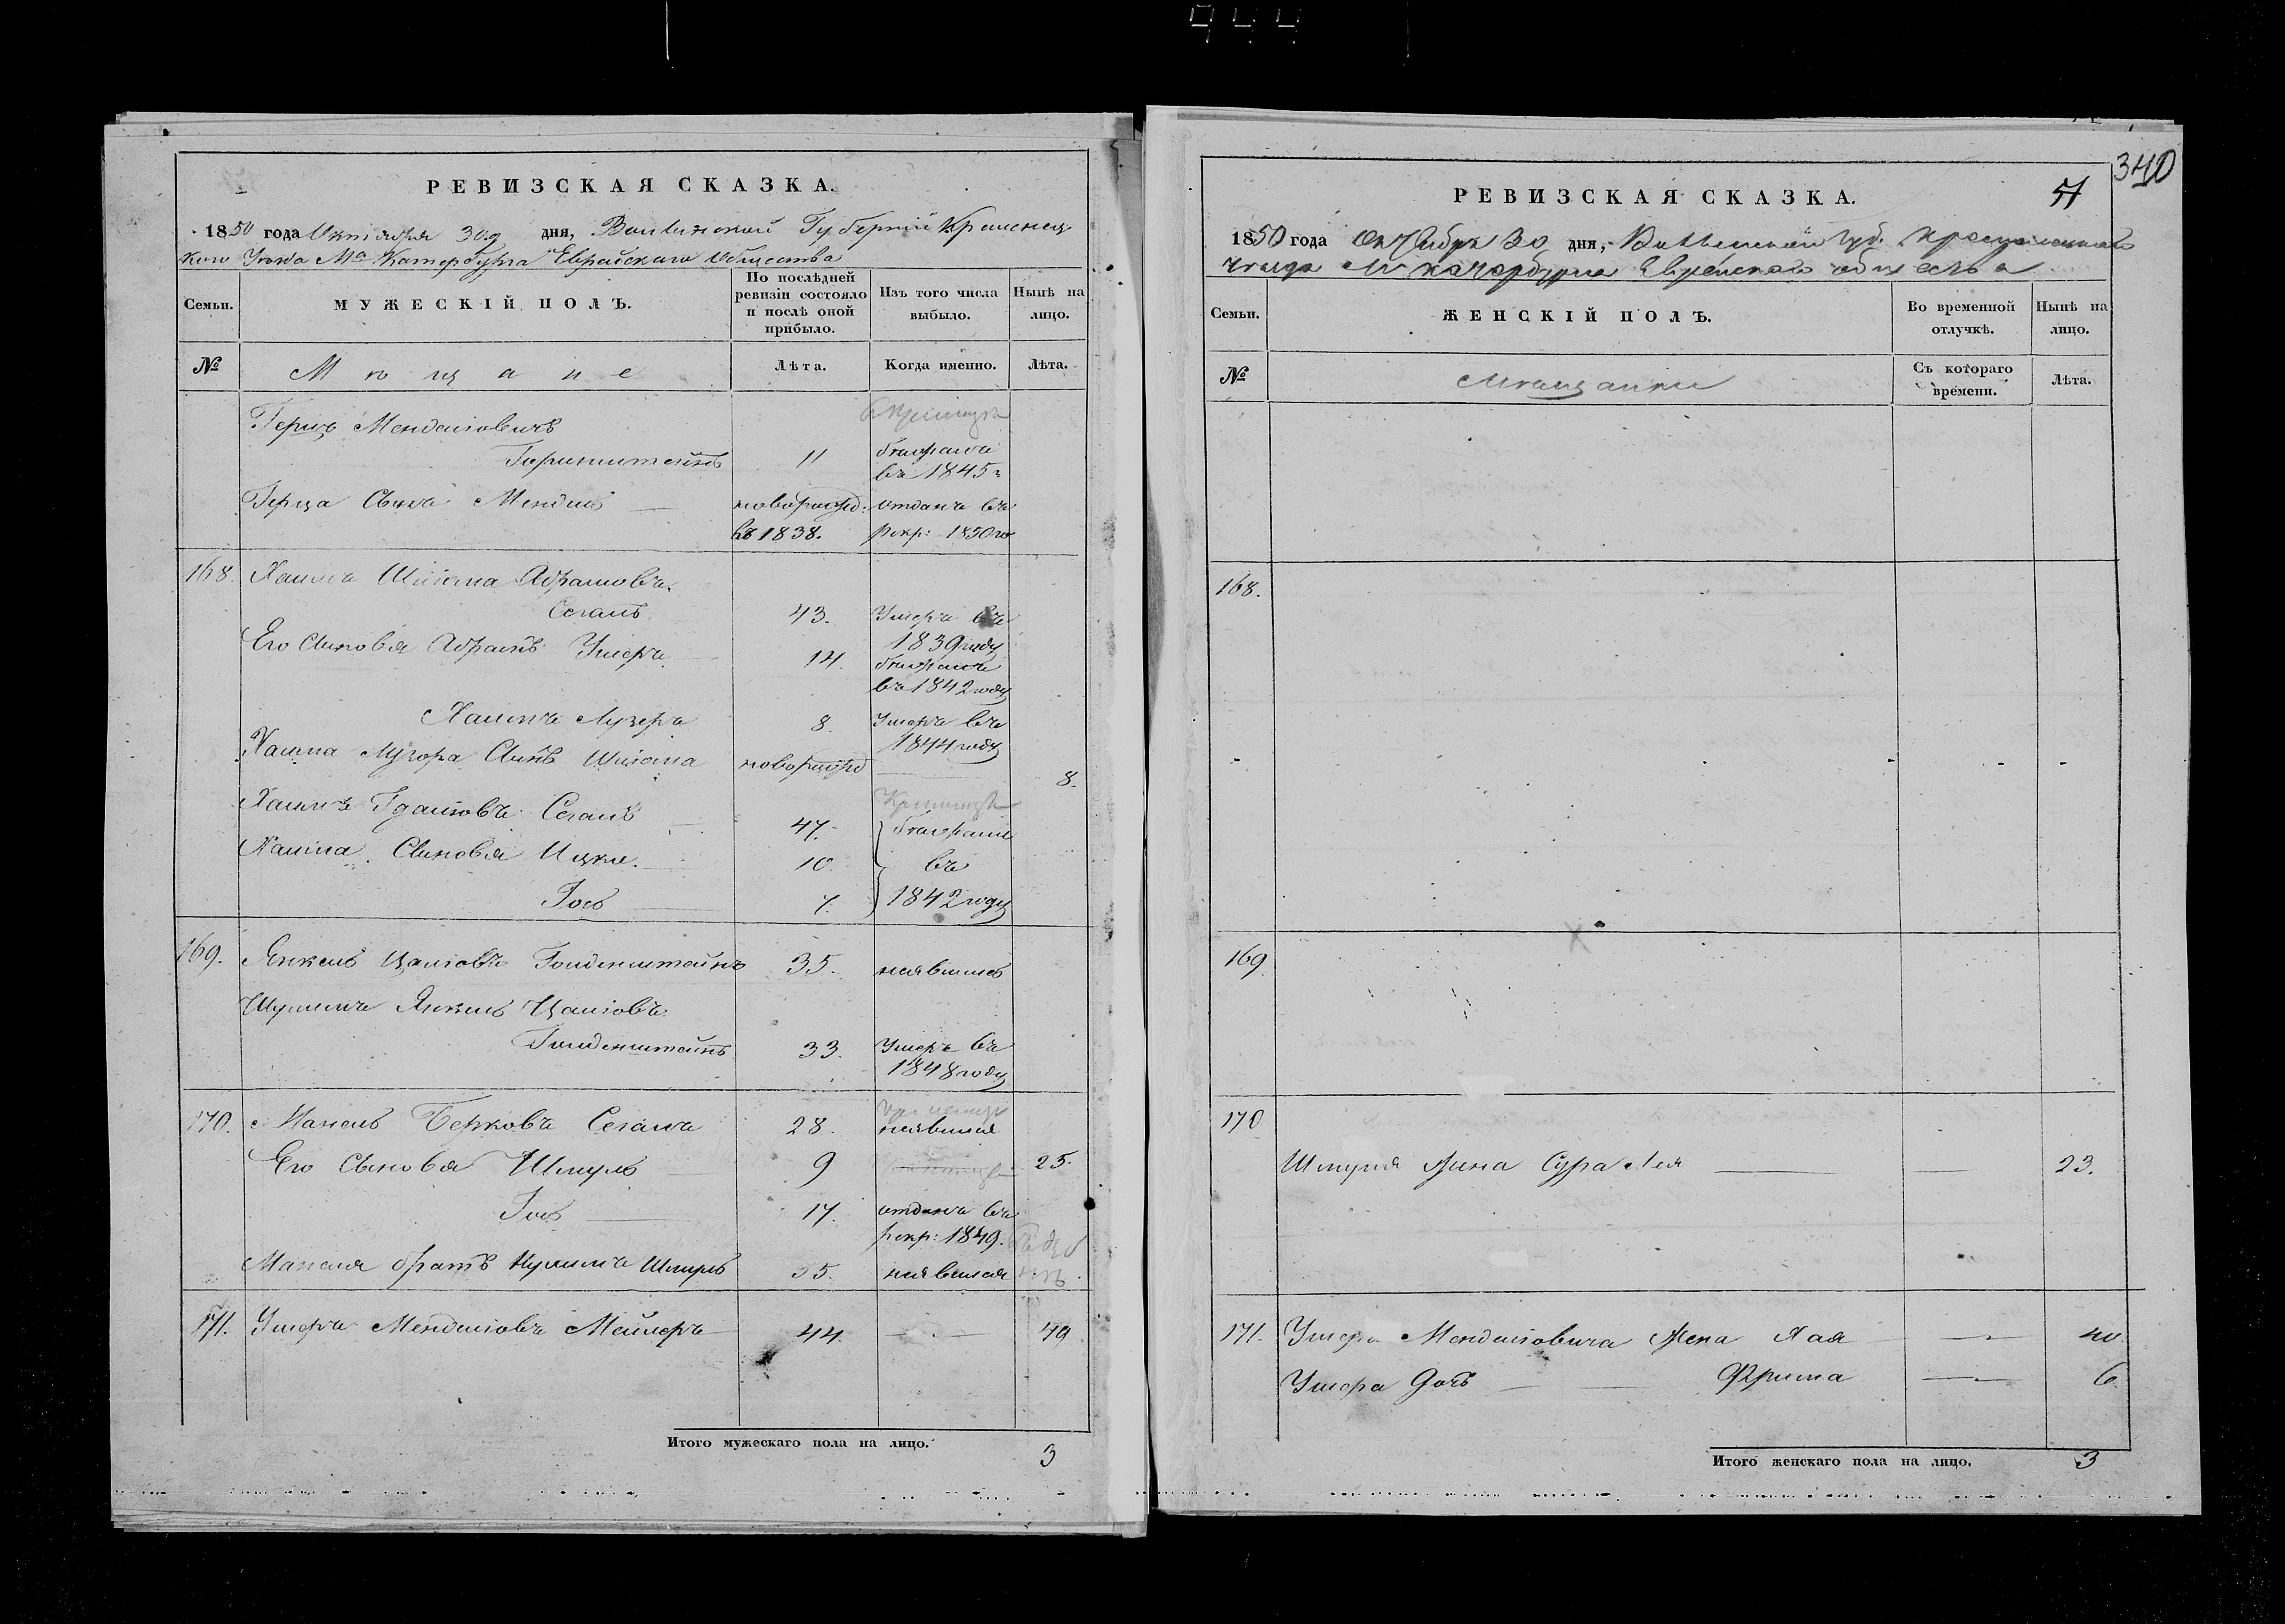 944
РЕВИЗСКАЯ СКАЗКА.
1850 года Октября 30 д дня, Волынской Губернии Кременец
кого Уезда Мѣ Катербурга Еврейскаго Общества
Семьи.
МУЖЕСКІЙ ПОЛЪ.
По послѣдней ревизіи состояло и послѣ оной прибыло.
Изъ того числа выбыло.
Нынѣ на лицо.
№
Мѣщане
Лѣта.
Когда именно.
Лѣта.
Герцъ Менделіовичъ
11
въ 1845
Герца Сынъ Мендель новорожд: отданъ въ
въ 1838. рекр: 1850го
168. Хаимъ Шліома Абрамовъ
Сегаль 43. Умеръ въ
1839году
Его Сыновья Абрамъ Умеръ 14.
въ 1842году
Хаимъ Лузеръ 8. Умеръ въ
1844году
Хаима Лузера Сынъ Шліома новорожд 8.
Хаимъ Сегаль 47.
Хаима Сыновья Ицко 10 въ
Іось 7. 1842году
169. Янкель Цаліовъ Гольденштейнъ 35. неявился
Шулимъ Янкель Цаліовъ
Гольденштейнъ 33. Умеръ въ
1848году
170. Манель Берковъ Сегалъ 28. неявился
Его Сыновья Шмуль 9 25.
Іось 17. отданъ въ
рекр: 1849.
Манеля братъ Шмуль 35. неявился
171. Умеръ Менделіовъ Мейлеръ 44. 49
Итого мужескаго пола на лицо. 3
340
РЕВИЗСКАЯ СКАЗКА.
57
1850 года Октября 30 дня, Волынской Губ. Кременецкаго
Уезда М. Катербурга Еврейскаго общества
Семьи.
ЖЕНСКІЙ ПОЛЪ.
Во временной отлучкѣ.
Нынѣ на лицо.
№
Мѣщанки
Съ котораго времени.
Лѣта.
168.
169
170
Шмуля Жина Сура Лея 23.
171. Умера Менделіовича Жена Хая 40
Умера Дочь Фрима 6
Итого женскаго пола на лицо. 3